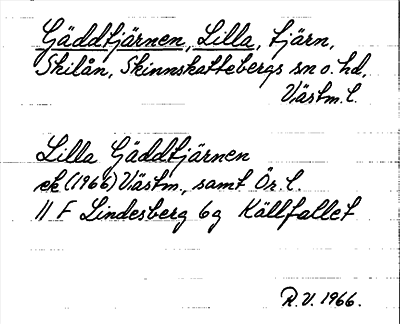 Gäddtjärnen, Lilla, tjärn,
Skilån, Skinnskattebergs sn o. hd,
Västm. l.
Lilla Gäddtjärnen
ek (1966) Västm., samt Ör. l.
11 F Lindesberg 6g Källfallet
R.V. 1966.